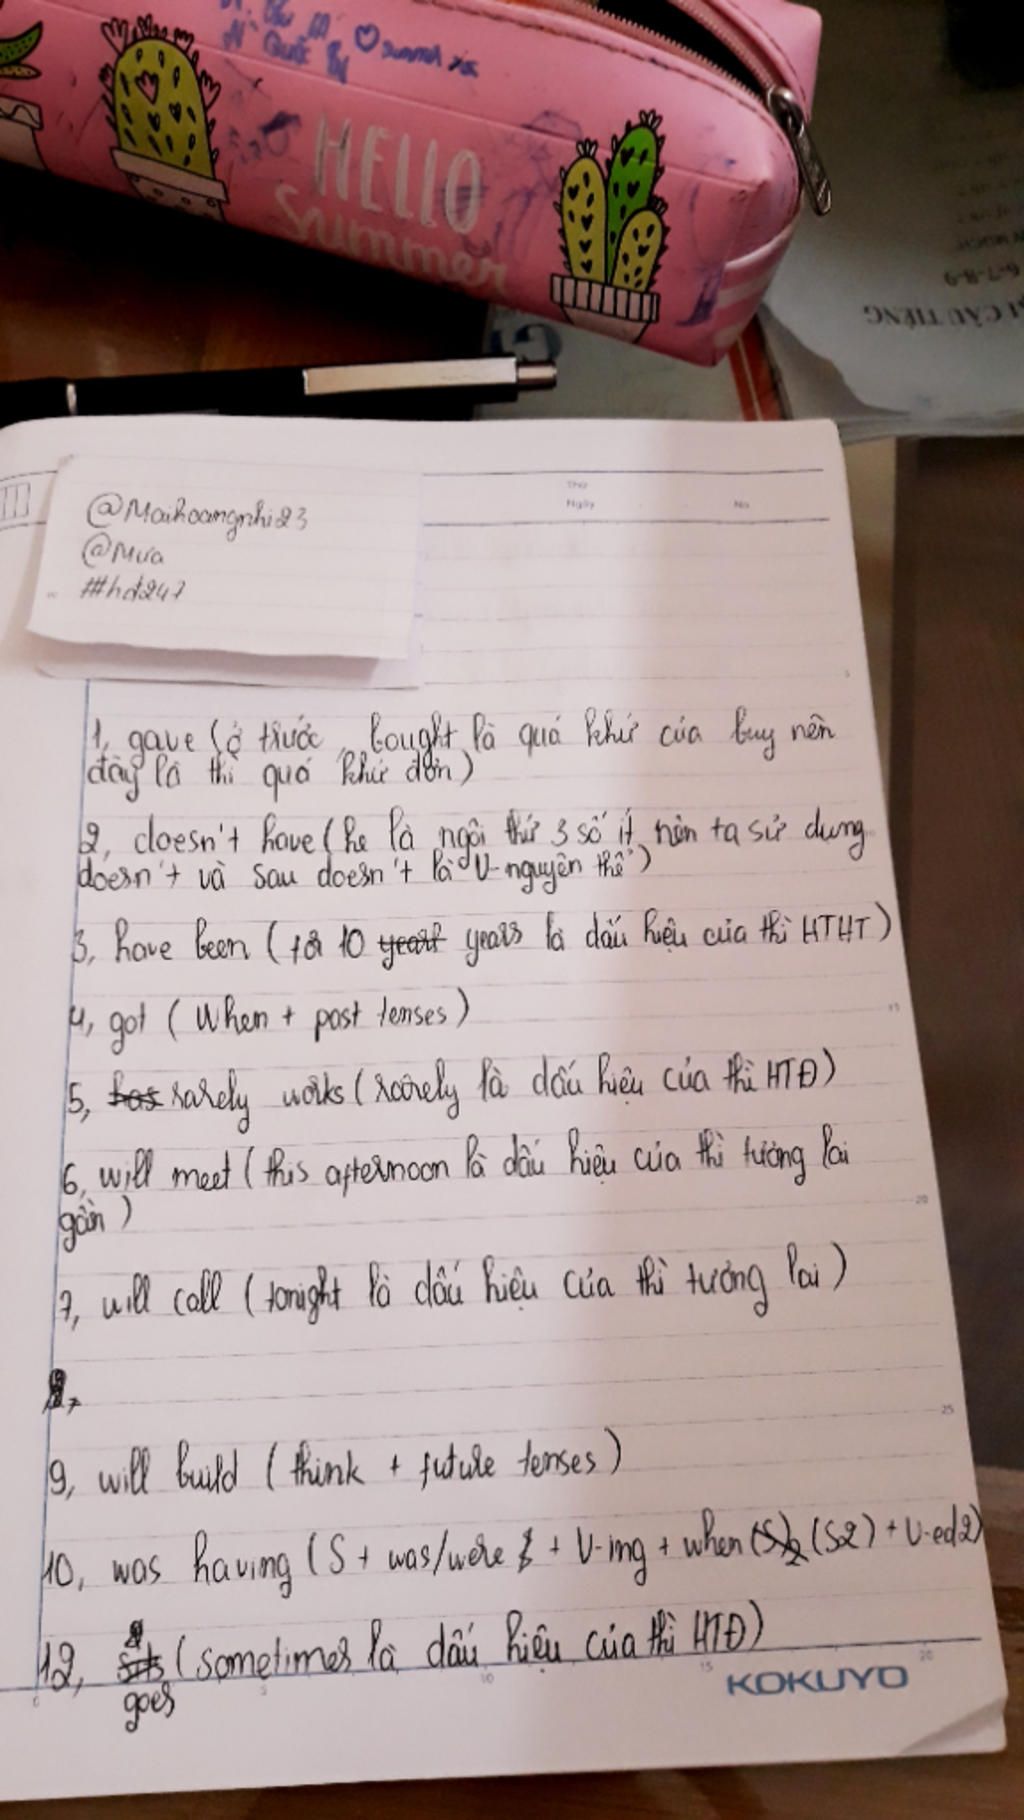 summer
HELLO
Summer
6-7-8-9
I CÂU TIẾNG
Thứ
Ngày No
@Maihoangnhi23
@Mưa
#hđ247
1, gave (ở trước, bought là quá khứ của buy nên
đây là thì quá khứ đơn)
2, doesn't have (he là ngôi thứ 3 số ít nên ta sử dụng
doesn't và sau doesn't là V-nguyên thể)
3, have been (for 10 years years là dấu hiệu của thì HTHT)
4, got (When + past tenses)
5, has rarely works (rarely là dấu hiệu của thì HTĐ)
6, will meet (this afternoon là dấu hiệu của thì tương lai
gần)
7, will call (tonight là dấu hiệu của thì tương lai)
8,
9, will build (think + future tenses)
10, was having (S + was/were + V-ing + when (S)2 (S2) + V-ed2)
12, (sometimes là dấu hiệu của thì HTĐ)
goes
KOKUYO